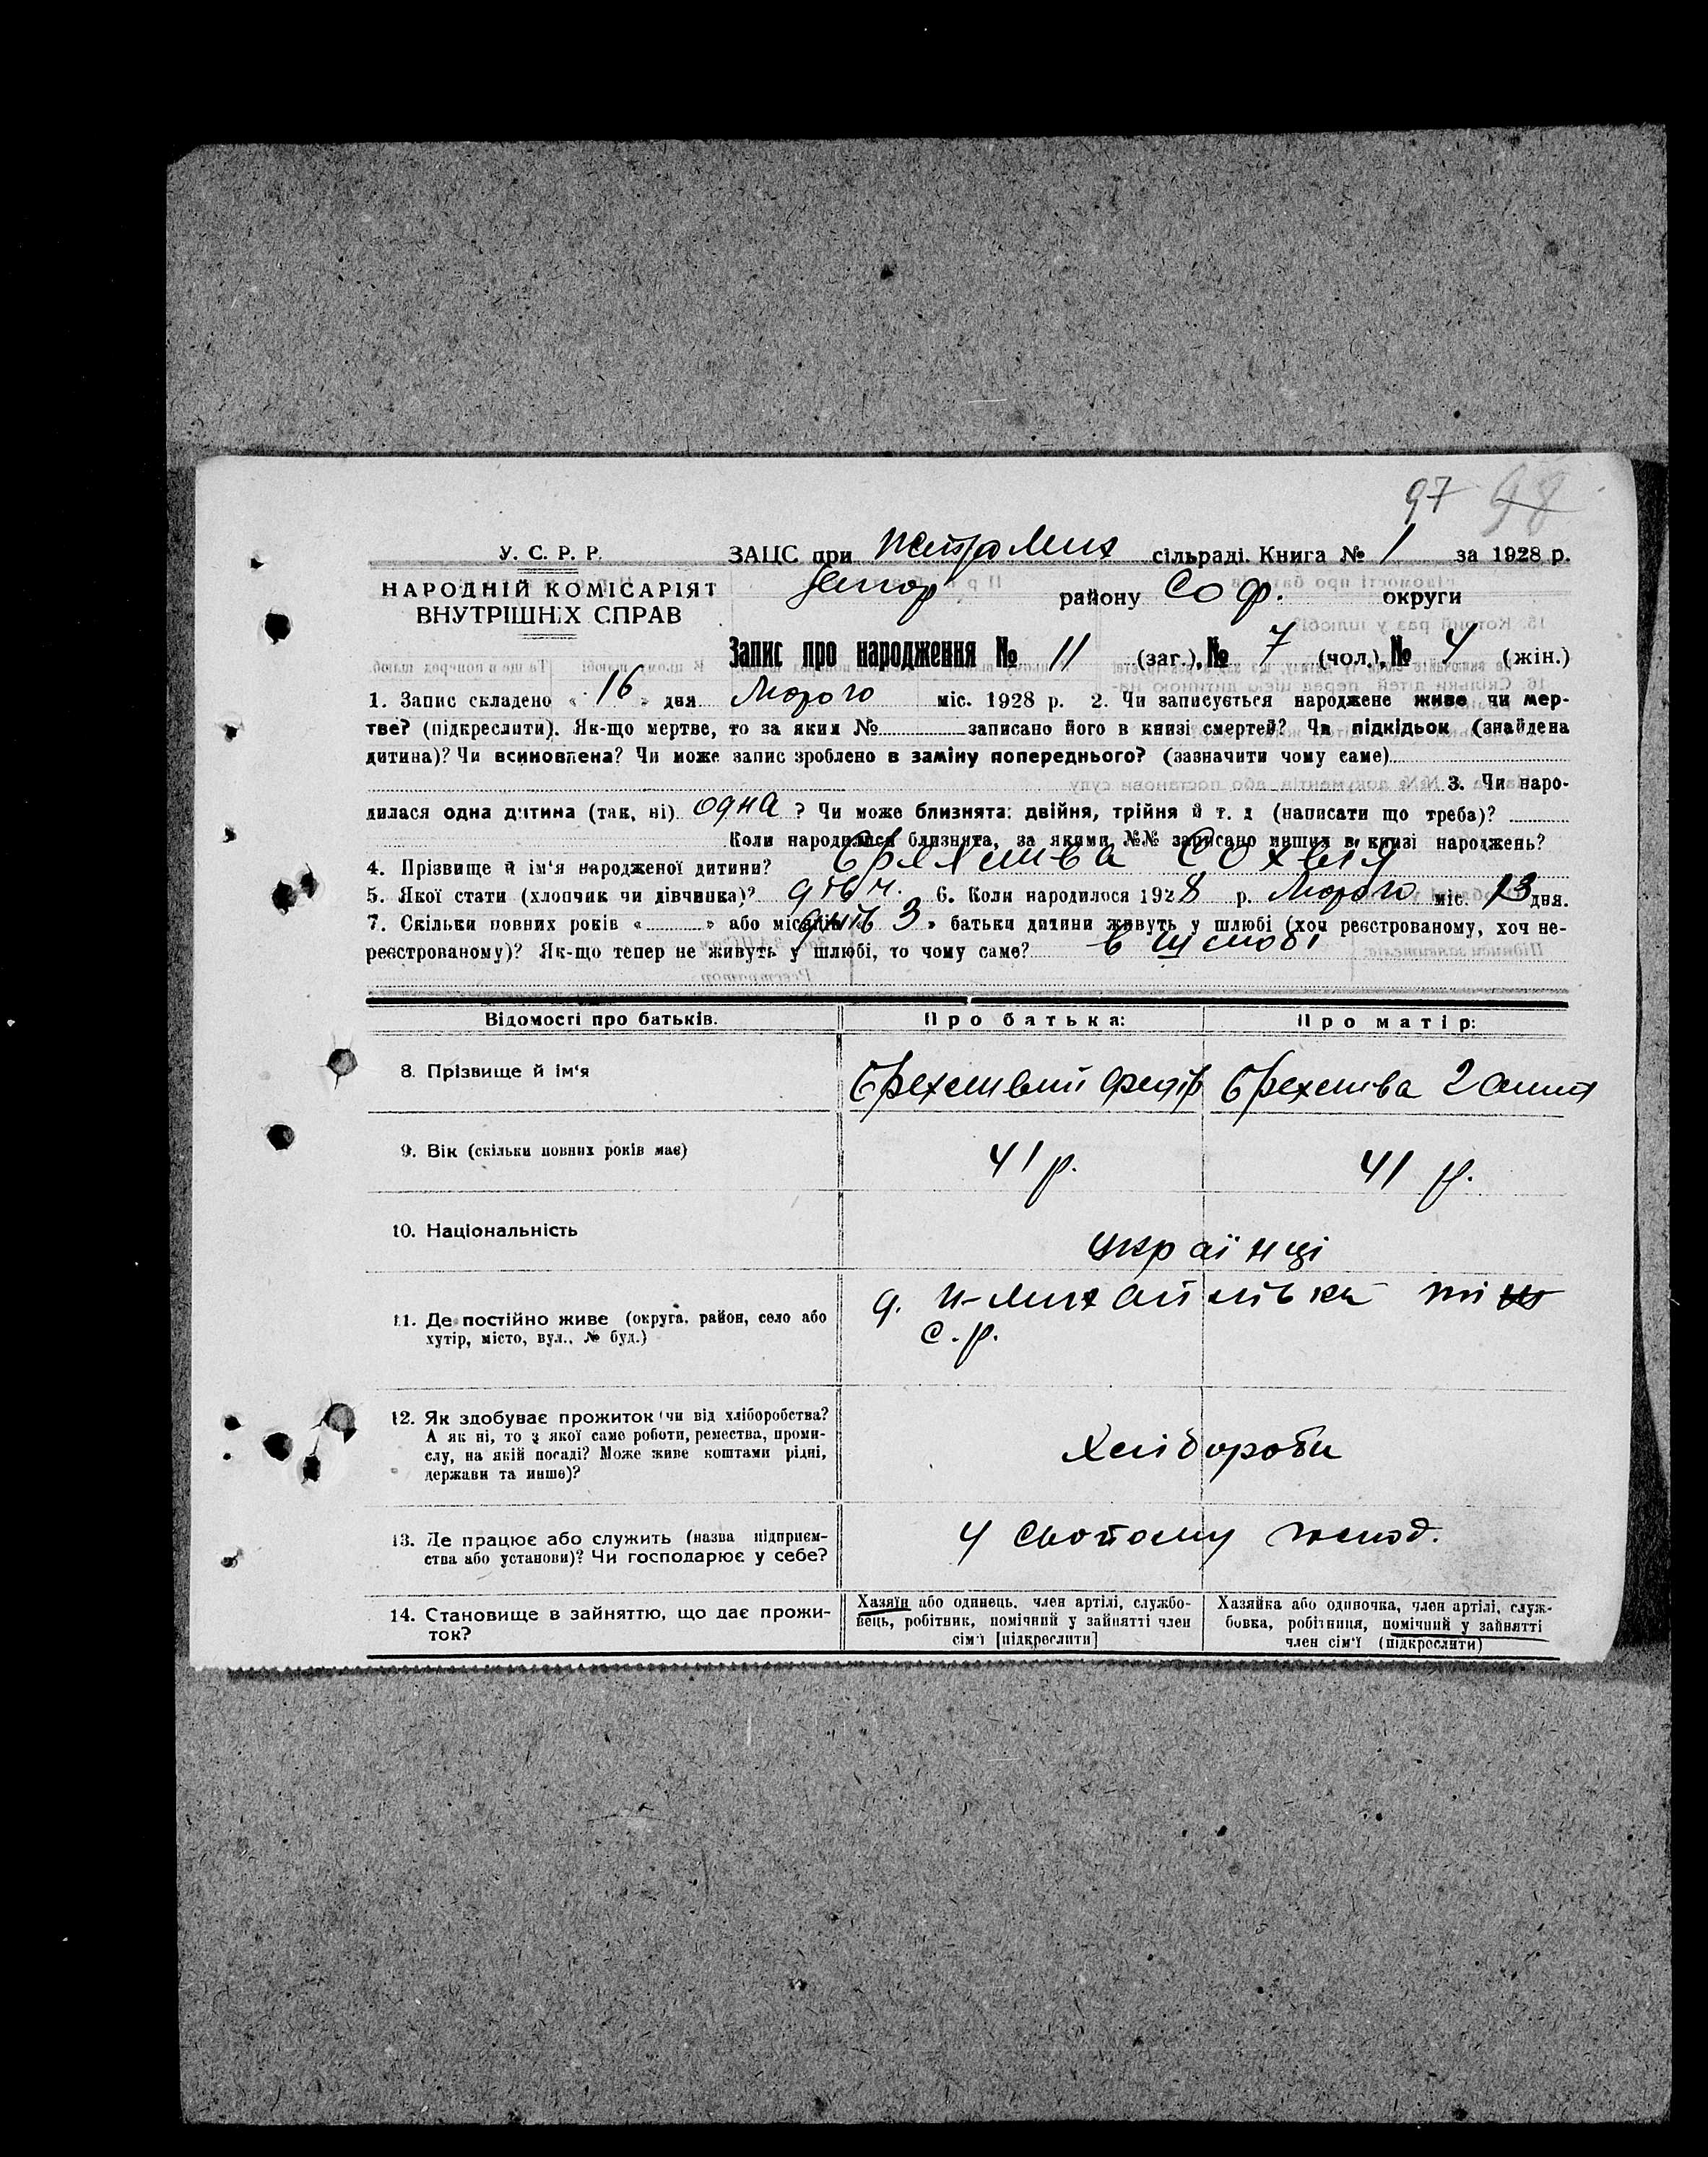 97 98
У. С. Р. Р.
НАРОДНІЙ КОМІСАРІЯТ
ВНУТРІШНІХ СПРАВ
ЗАЦС при сільраді. Книга № 1 за 1928 р.
району Соф. округи
Запис про народження № 11 (заг.), № 7 (чол.), № 4 (жін.)
1. Запис складено « 16 » дня Лютого міс. 1928 р. 2. Чи записується народжене живе чи мер-
тве? (підкреслити). Як-що мертве, то за яким № записано його в книзі смертей? Чи підкідьок (знайдена
дитина)? Чи всиновлена? Чи може запис зроблено в заміну попереднього? (зазначити чому саме)
3. Чи наро-
дилася одна дитина (так, ні) одна ? Чи може близнята: двійня, трійня й т. д (написати що треба)?
Коли народилися близнята, за якими №№ записано инших в книзі народжень?
4. Прізвище й ім'я народженої дитини? Брехлива Сохвія
5. Якої стати (хлопчик чи дівчинка)? дівч. 6. Коли народилося 1928 р. Лютого міс. 13 дня.
7. Скільки повних років « » або місяців днів 3 » батьки дитини живуть у шлюбі (хоч реєстрованому, хоч не-
реєстрованому)? Як-що тепер не живуть у шлюбі, то чому саме? в шлюбі
Відомості про батьків. Про батька: Про матір:
8. Прізвище й ім'я Брехливий Федір Брехлива
9. Вік (скільки повних років має) 41 р. 41 р.
10. Національність українці
11. Де постійно живе (округа, район, село або
хутір, місто, вул., № буд.)
с. р.
12. Як здобуває прожиток (чи від хліборобства?
А як ні, то з якої саме роботи, ремества, проми-
слу, на якій посаді? Може живе коштами рідні,
держави та инше)?
Хлібороби
13. Де працює або служить (назва підприєм-
ства або установи)? Чи господарює у себе?
У свойому господ.
14. Становище в зайняттю, що дає прожи-
ток?
Хазяїн або одинець, член артілі, службо-
вець, робітник, помічний у зайнятті член
сім'ї [підкреслити]
Хазяйка або одиночка, член артілі, служ-
бовка, робітниця, помічний у зайнятті
член сім'ї (підкреслити)